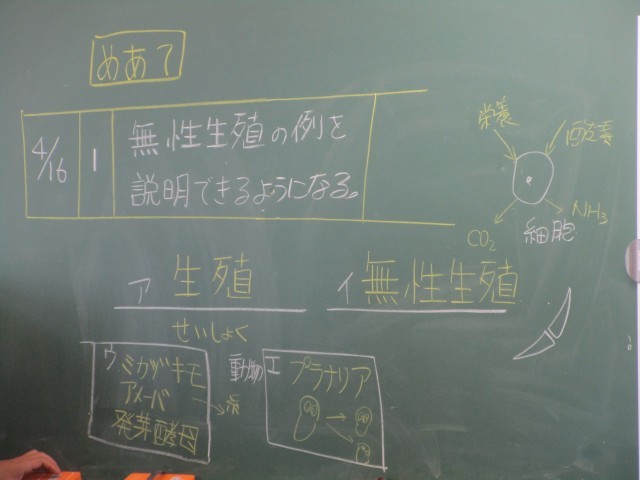 めあて
4/16
1
無性生殖の例を
説明できるようになる。
栄養
酸素
CO2
NH3
細胞
ア 生殖
イ 無性生殖
せいしょく
ウ ミカヅキモ
アメーバ
発芽酵母
動物の
エ プラナリア